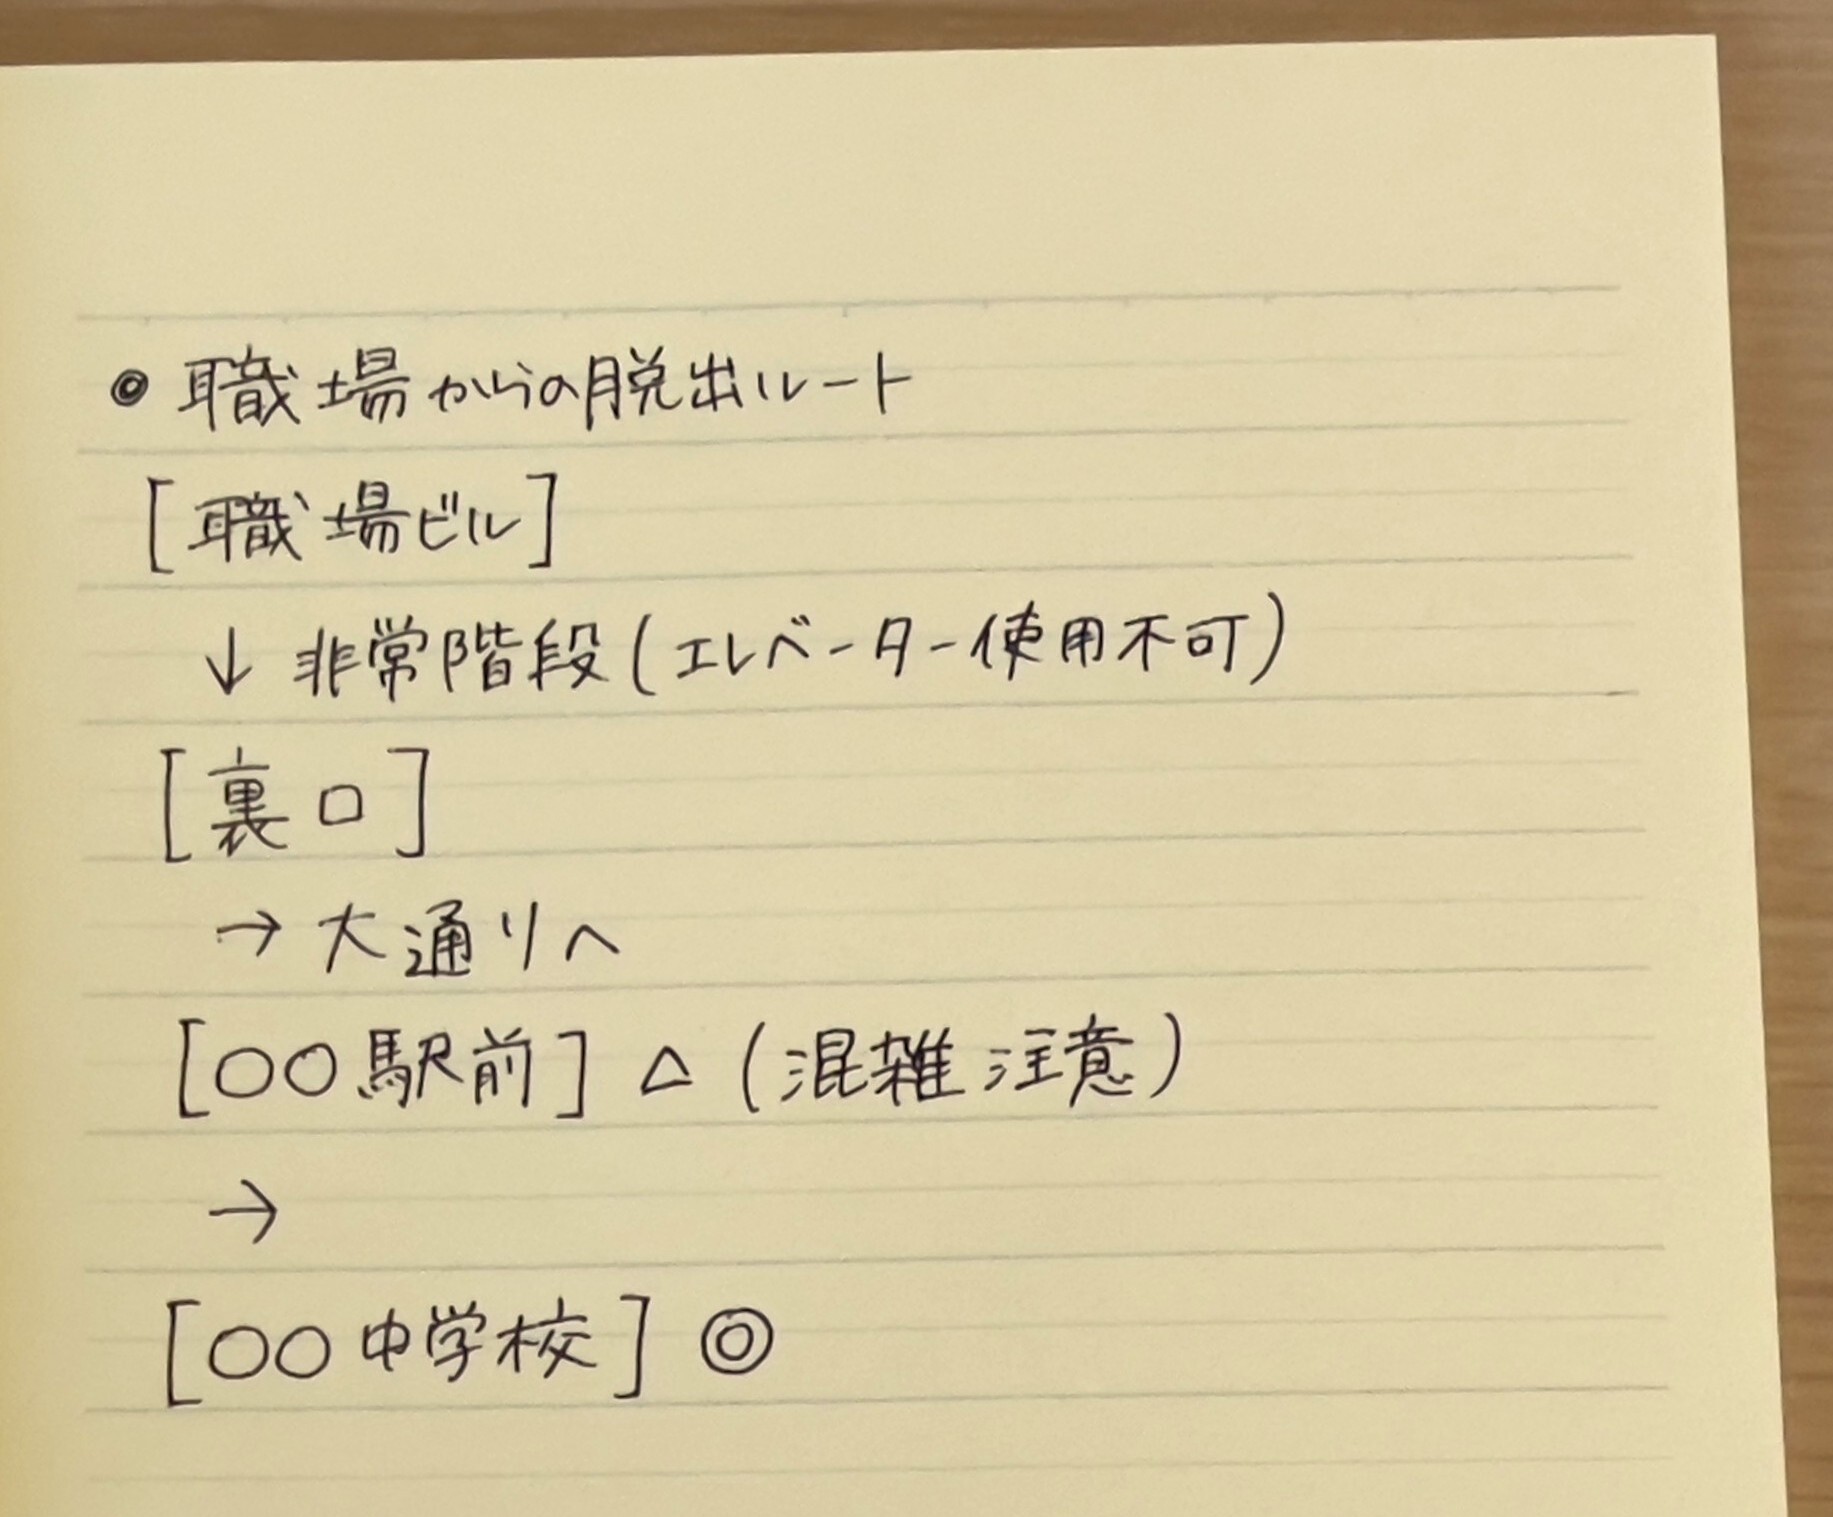 ◎ 職場からの脱出ルート
[職場ビル]
↓ 非常階段(エレベーター使用不可)
[裏口]
→ 大通りへ
[〇〇駅前] △ (混雑注意)
→
[〇〇中学校] ◎